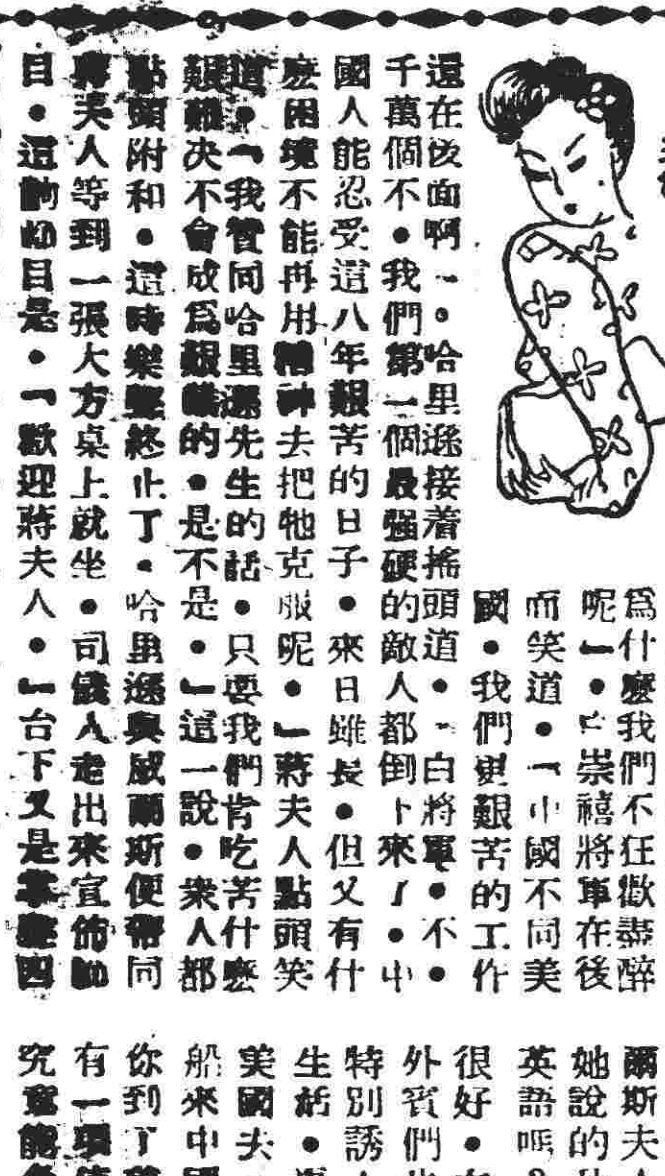 爲什麽我們不狂歡盡醉
呢」●白崇禧將軍在後
而笑道●「中國不同美
國●我們更艱苦的工作
還在後面啊」●哈里遜接着搖頭道●「白將軍●不●
千萬個不●我們第一個最强硬的敵人都倒下來了●中
國人能忍受這八年艱苦的日子●來日雖長●但又有什
麽困境不能再用精神去把牠克服呢●」蔣夫人點頭笑
道●「我贊同哈里遜先生的話●只要我們肯吃苦什麽
艱難决不會成爲艱難的●是不是●」這一說●衆人都
點頭附和●這時樂聲終止了●哈里遜與威爾斯便帶同
蔣夫人等到一張大方桌上就坐●司儀人走出來宣佈節
目●這節目是●「歡迎蔣夫人●」台下又是掌聲四
爾斯夫
她說的
英語嗎
很好●
外賓們
特別誘
生活●
美國夫
船來中國
你到了
有一項
究竟能